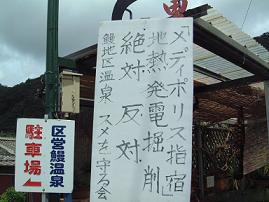 「メディポリス指宿」
地熱発電掘削
絶対反対
鰻地区温泉 スメを守る会
区営鰻温泉
駐車場